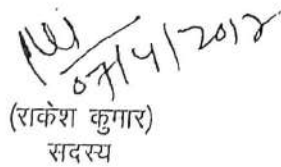 07/4/2012
(राकेश कुमार)
सदस्य